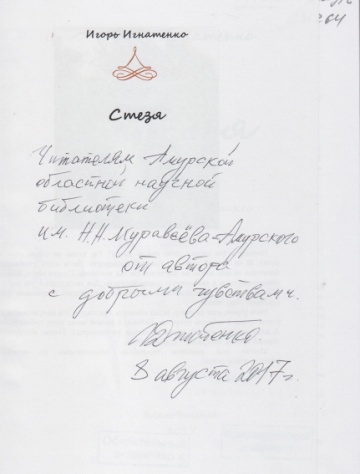 Игорь Игнатенко
Стезя
Читателям Амурской
областной научной
библиотеки
им. Н.Н. Муравьёва-Амурского
от автора
с добрыми чувствами.
8 августа 2017 г.